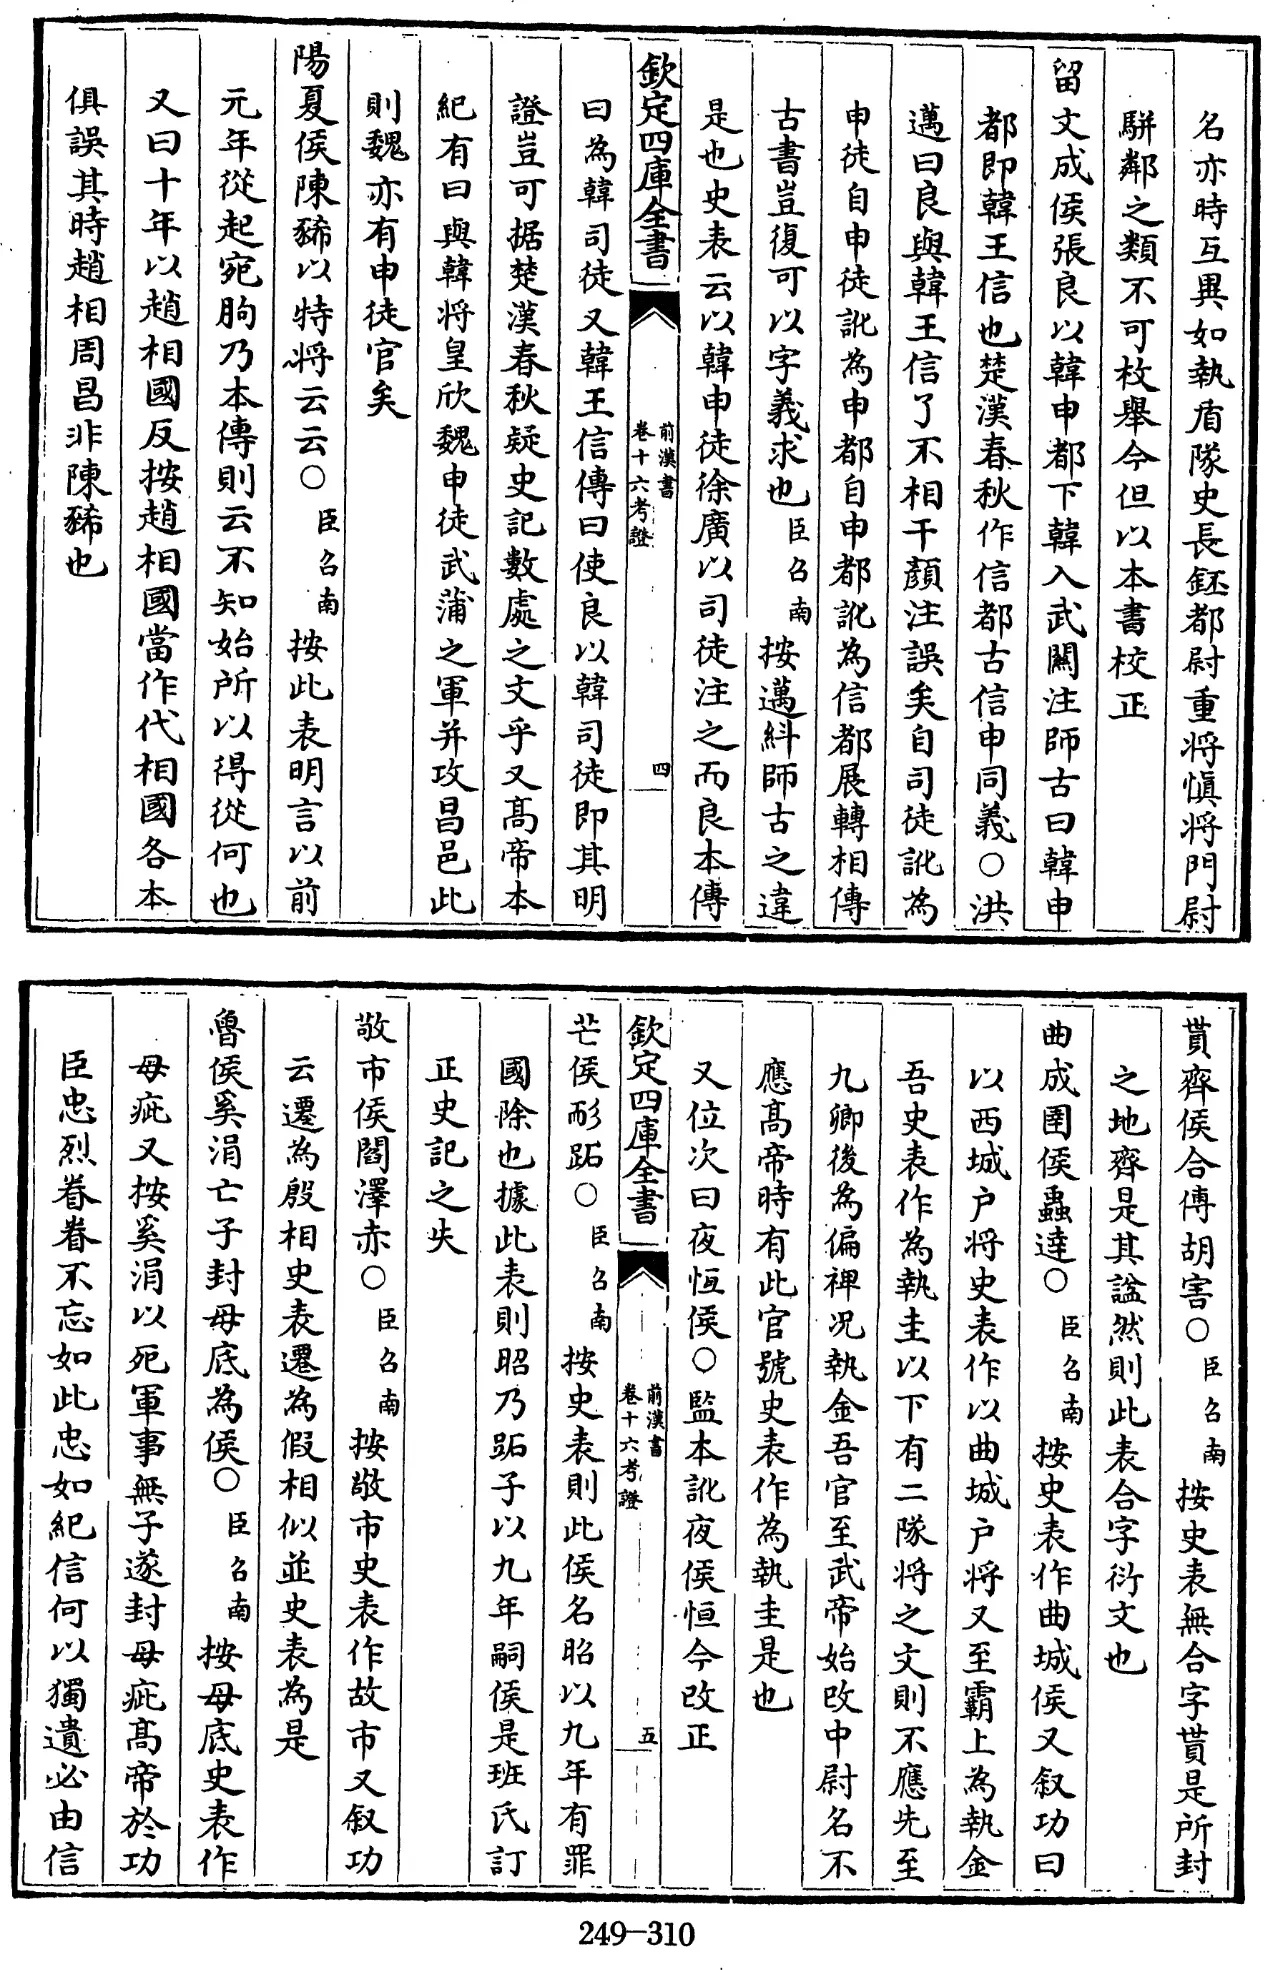 名亦時互異如執盾隊史長鈺都尉重將慎將門尉
騈鄰之類不可枚舉今但以本書校正
留文成侯張良以韓申都下韓入武關注師古曰韓申
都即韓王信也楚漢春秋作信都古信申同義○洪
邁曰良與韓王信了不相干顔注誤矣自司徒訛為
申徒自申徒訛為申都自申都訛為信都展轉相傳
古書豈復可以字義求也臣召南按邁糾師古之違
是也史表云以韓申徒徐廣以司徒注之而良本傳
欽定四庫全書
前漢書
卷十六考證
四
曰為韓司徒又韓王信傳曰使良以韓司徒即其明
證豈可据楚漢春秋疑史記數處之文乎又高帝本
紀有曰與韓將皇欣魏申徒武蒲之軍并攻昌邑此
則魏亦有申徒官矣
陽夏侯陳豨以特將云云○臣召南按此表明言以前
元年從起宛朐乃本傳則云不知始所以得從何也
又曰十年以趙相國反按趙相國當作代相國各本
俱誤其時趙相周昌非陳豨也
貰齊侯合傅胡害○臣召南按史表無合字貰是所封
之地齊是其諡然則此表合字衍文也
曲成圉侯蟲達○臣召南按史表作曲城侯又叙功曰
以西城户將史表作以曲城户將又至霸上為執金
吾史表作為執圭以下有二隊將之文則不應先至
九卿後為偏裨况執金吾官至武帝始改中尉名不
應高帝時有此官號史表作為執圭是也
又位次曰夜恆侯○監本訛夜侯恒今改正
欽定四庫全書
前漢書
卷十六考證
五
芒侯耏跖○臣召南按史表則此侯名昭以九年有罪
國除也據此表則昭乃跖子以九年嗣侯是班氏訂
正史記之失
敬市侯閻澤赤○臣召南按敬市史表作故市又叙功
云遷為殷相史表遷為假相似並史表為是
魯侯奚涓亡子封母底為侯○臣召南按母底史表作
母疵又按奚涓以死軍事無子遂封母疵高帝於功
臣忠烈眷眷不忘如此忠如紀信何以獨遺必由信
249-310